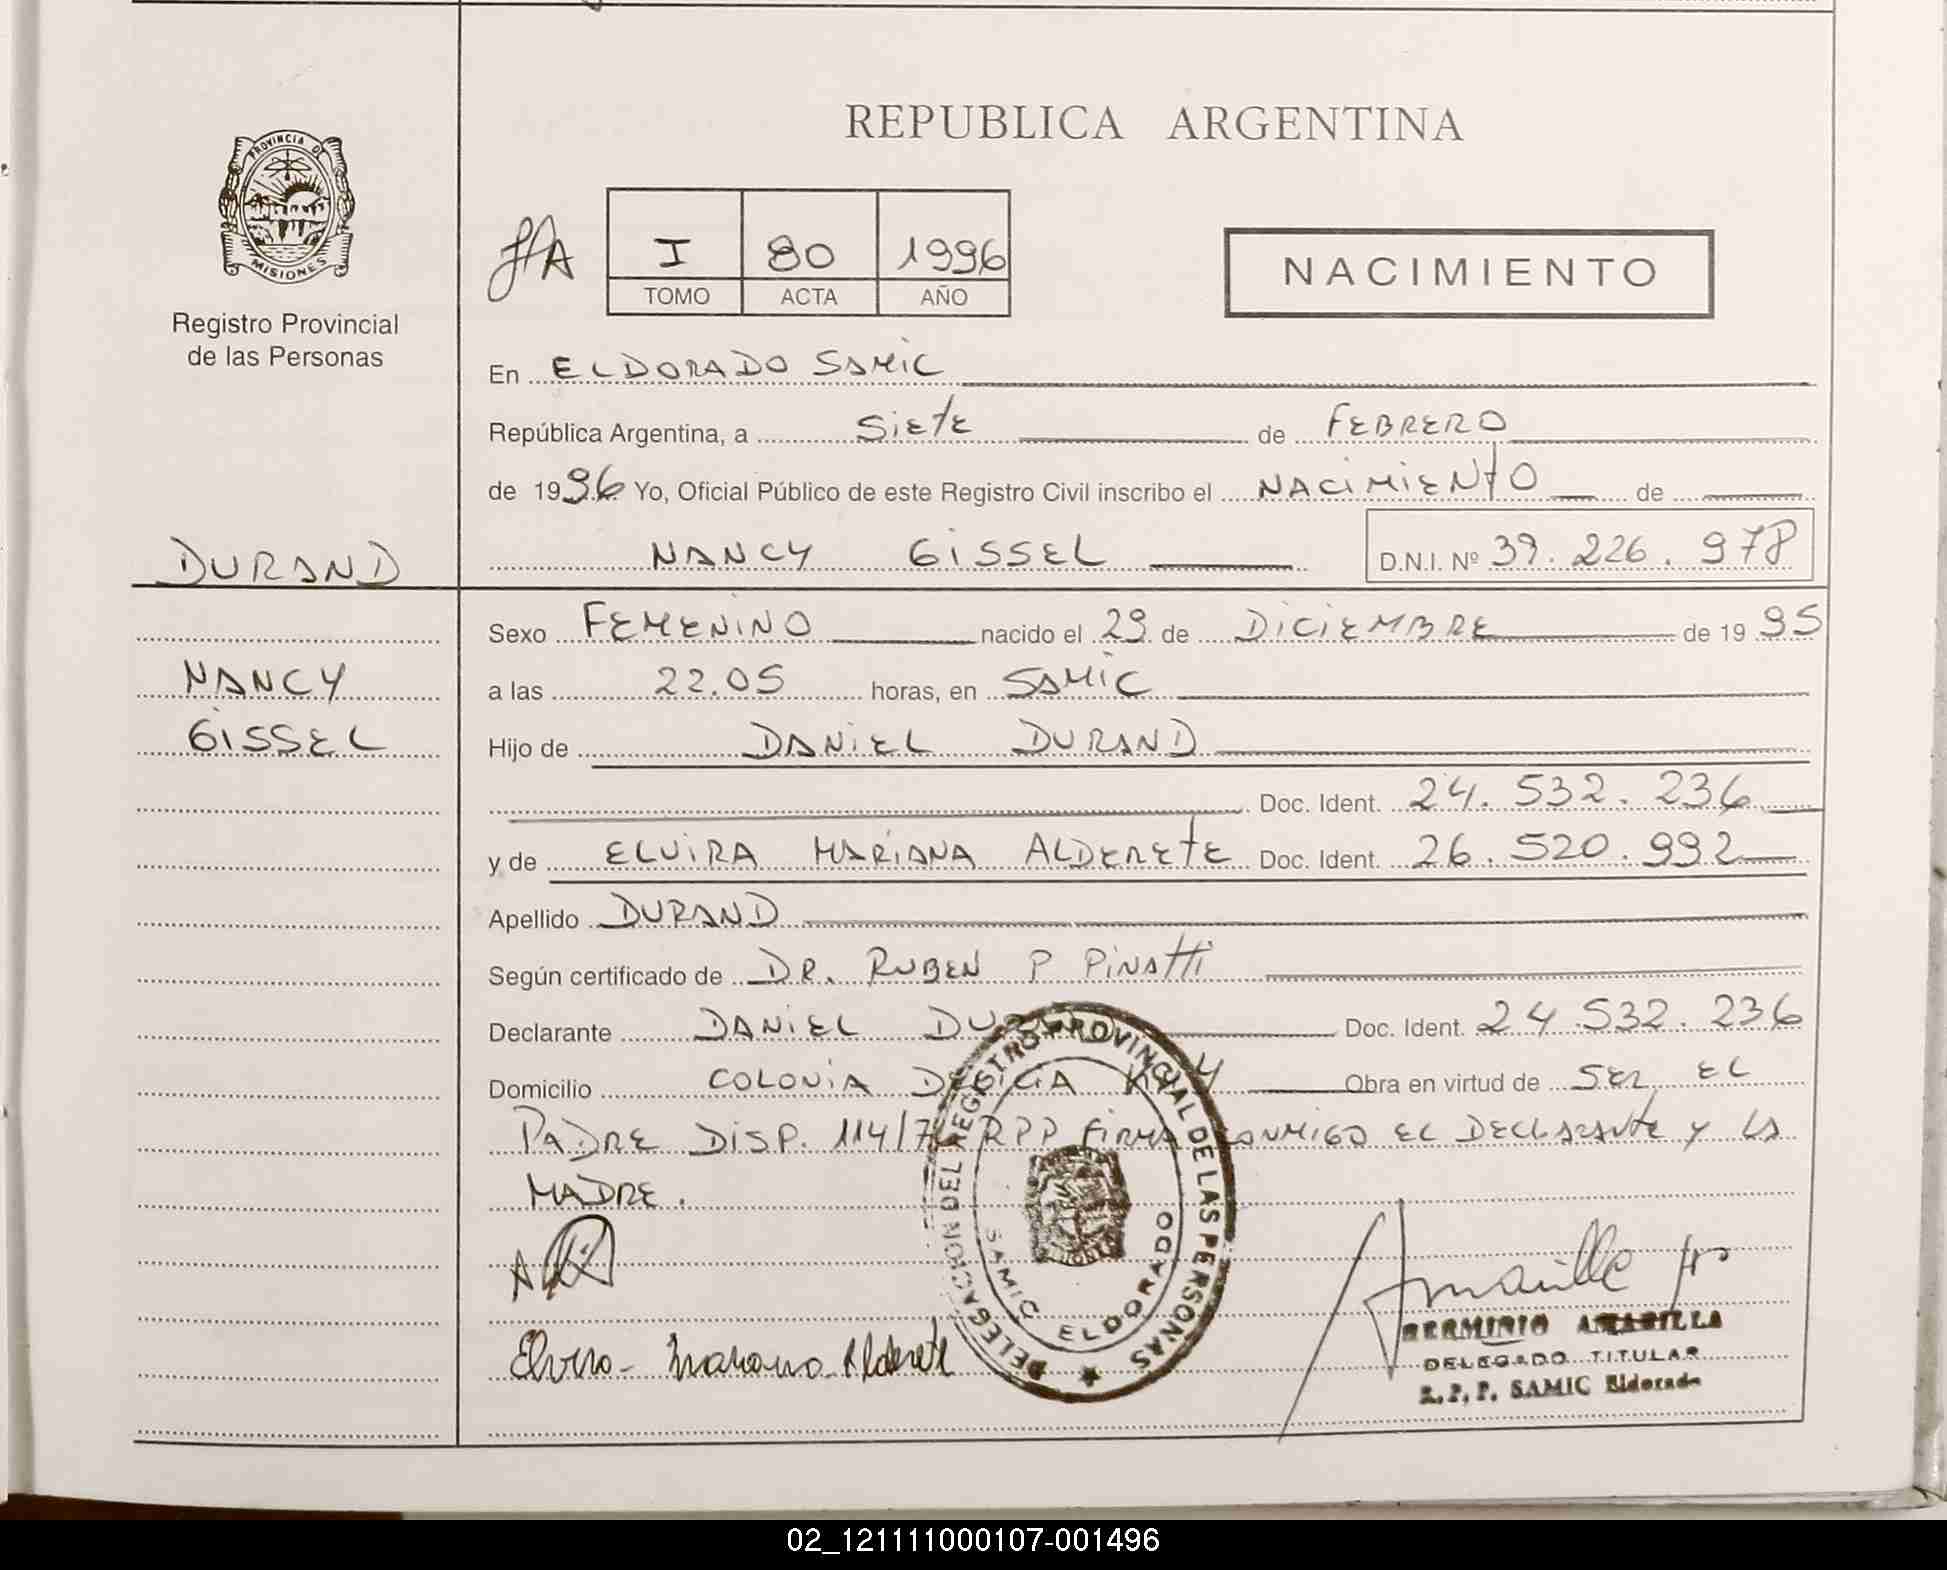 REPUBLICA ARGENTINA
PROVINCIA DE
MISIONES
Registro Provincial
de las Personas
I 80 1996
TOMO ACTA AÑO
NACIMIENTO
En ELDORADO SAMIC
República Argentina, a Siete de FEBRERO
de 1996 Yo, Oficial Público de este Registro Civil inscribo el NACIMIENTO de
DURAND
NANCY GISSEL D.N.I. Nº 39.226.978
Sexo FEMENINO nacido el 29 de DICIEMBRE de 1995
NANCY
a las 22.05 horas, en SAMIC
GISSEL
Hijo de DANIEL DURAND
Doc. Ident. 24.532.236
y de ELVIRA MARIANA ALDERETE Doc. Ident. 26.520.992
Apellido DURAND
Según certificado de DR. RUBEN P PINATTI
Declarante DANIEL Doc. Ident. 24.532.236
Domicilio COLONIA Obra en virtud de SER EL
PADRE DISP. RPP FIRMA CONMIGO EL DECLARANTE Y LA
MADRE.
DELEGACION DEL REGISTRO PROVINCIAL DE LAS PERSONAS
SAMIC ELDORADO
Elvira Mariana Alderete
HERMINIO AMARILLA
DELEGADO TITULAR
R.P.P. SAMIC Eldorado
02_121111000107-001496